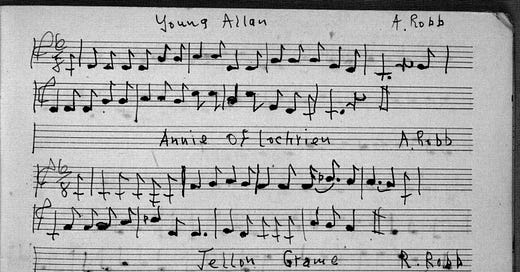 Young Allan A. Robb
Annie Of Lochrien A. Robb
Jellon Grame R. Robb